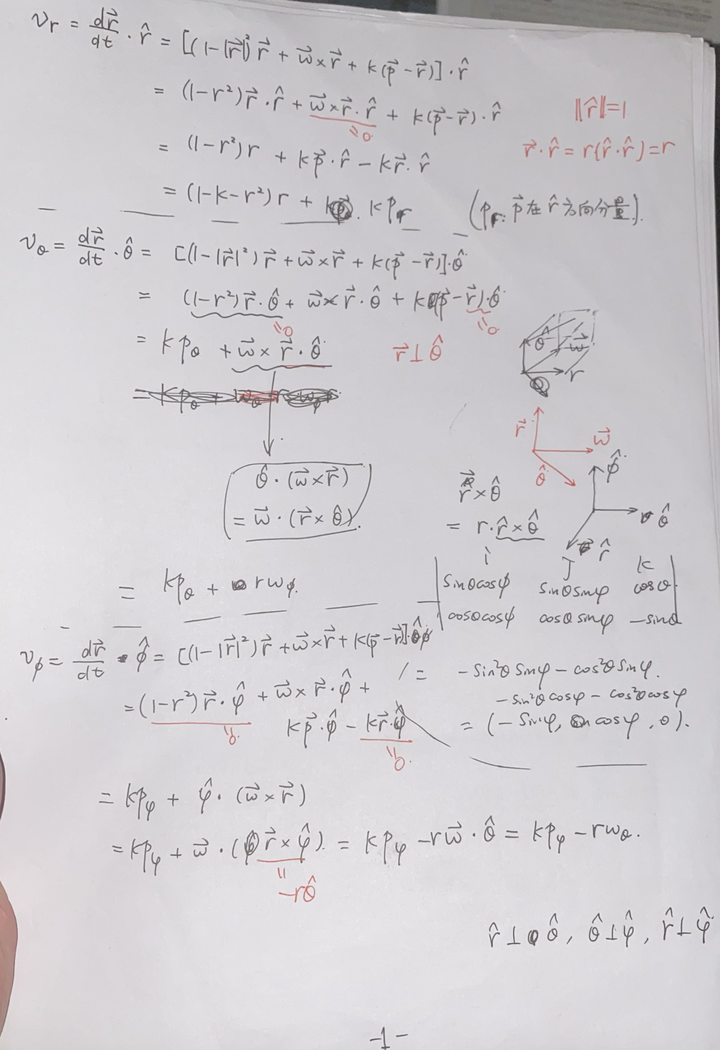 v_r = dr⃗/dt · r̂ = [(1-|r⃗|)² r⃗ + ω⃗×r⃗ + k(p⃗-r⃗)]·r̂
= (1-r²) r⃗·r̂ + ω⃗×r⃗·r̂ + k(p⃗-r⃗)·r̂
=0
‖r̂‖=1
= (1-r²)r + kp⃗·r̂ - kr⃗·r̂
r⃗·r̂ = r(r̂·r̂) = r
= (1-k-r²)r + kp_r (p_r: p⃗在r̂方向分量).
v_θ = dr⃗/dt · θ̂ = [(1-|r⃗|²)r⃗ + ω⃗×r⃗ + k(p⃗-r⃗)]·θ̂
= (1-r²)r⃗·θ̂ + ω⃗×r⃗·θ̂ + k(p⃗-r⃗)·θ̂
=0 =0
= kp_θ + ω⃗×r⃗·θ̂ r⃗⊥θ̂
θ̂ ω⃗ r
r⃗ ω⃗ θ̂
θ̂·(ω⃗×r⃗)
= ω⃗·(r⃗×θ̂)
r⃗×θ̂
= r·r̂×θ̂
φ̂ θ̂ r̂
i J K
sinθcosφ sinθsinφ cosθ
cosθcosφ cosθsinφ -sinθ
= kp_θ + rω_φ.
v_φ = dr⃗/dt · φ̂ = [(1-|r⃗|²)r⃗ + ω⃗×r⃗ + k(p⃗-r⃗)]·φ̂
= -sin²θsinφ - cos²θsinφ.
-sin²θcosφ - cos²θcosφ
= (-sinφ, cosφ, 0).
= (1-r²)r⃗·φ̂ + ω⃗×r⃗·φ̂ +
=0
kp⃗·φ̂ - kr⃗·φ̂
=0
= kp_φ + φ̂·(ω⃗×r⃗)
= kp_φ + ω⃗·(r⃗×φ̂) = kp_φ - rω⃗·θ̂ = kp_φ - rω_θ.
= -rθ̂
r̂⊥θ̂, θ̂⊥φ̂, r̂⊥φ̂
-1-